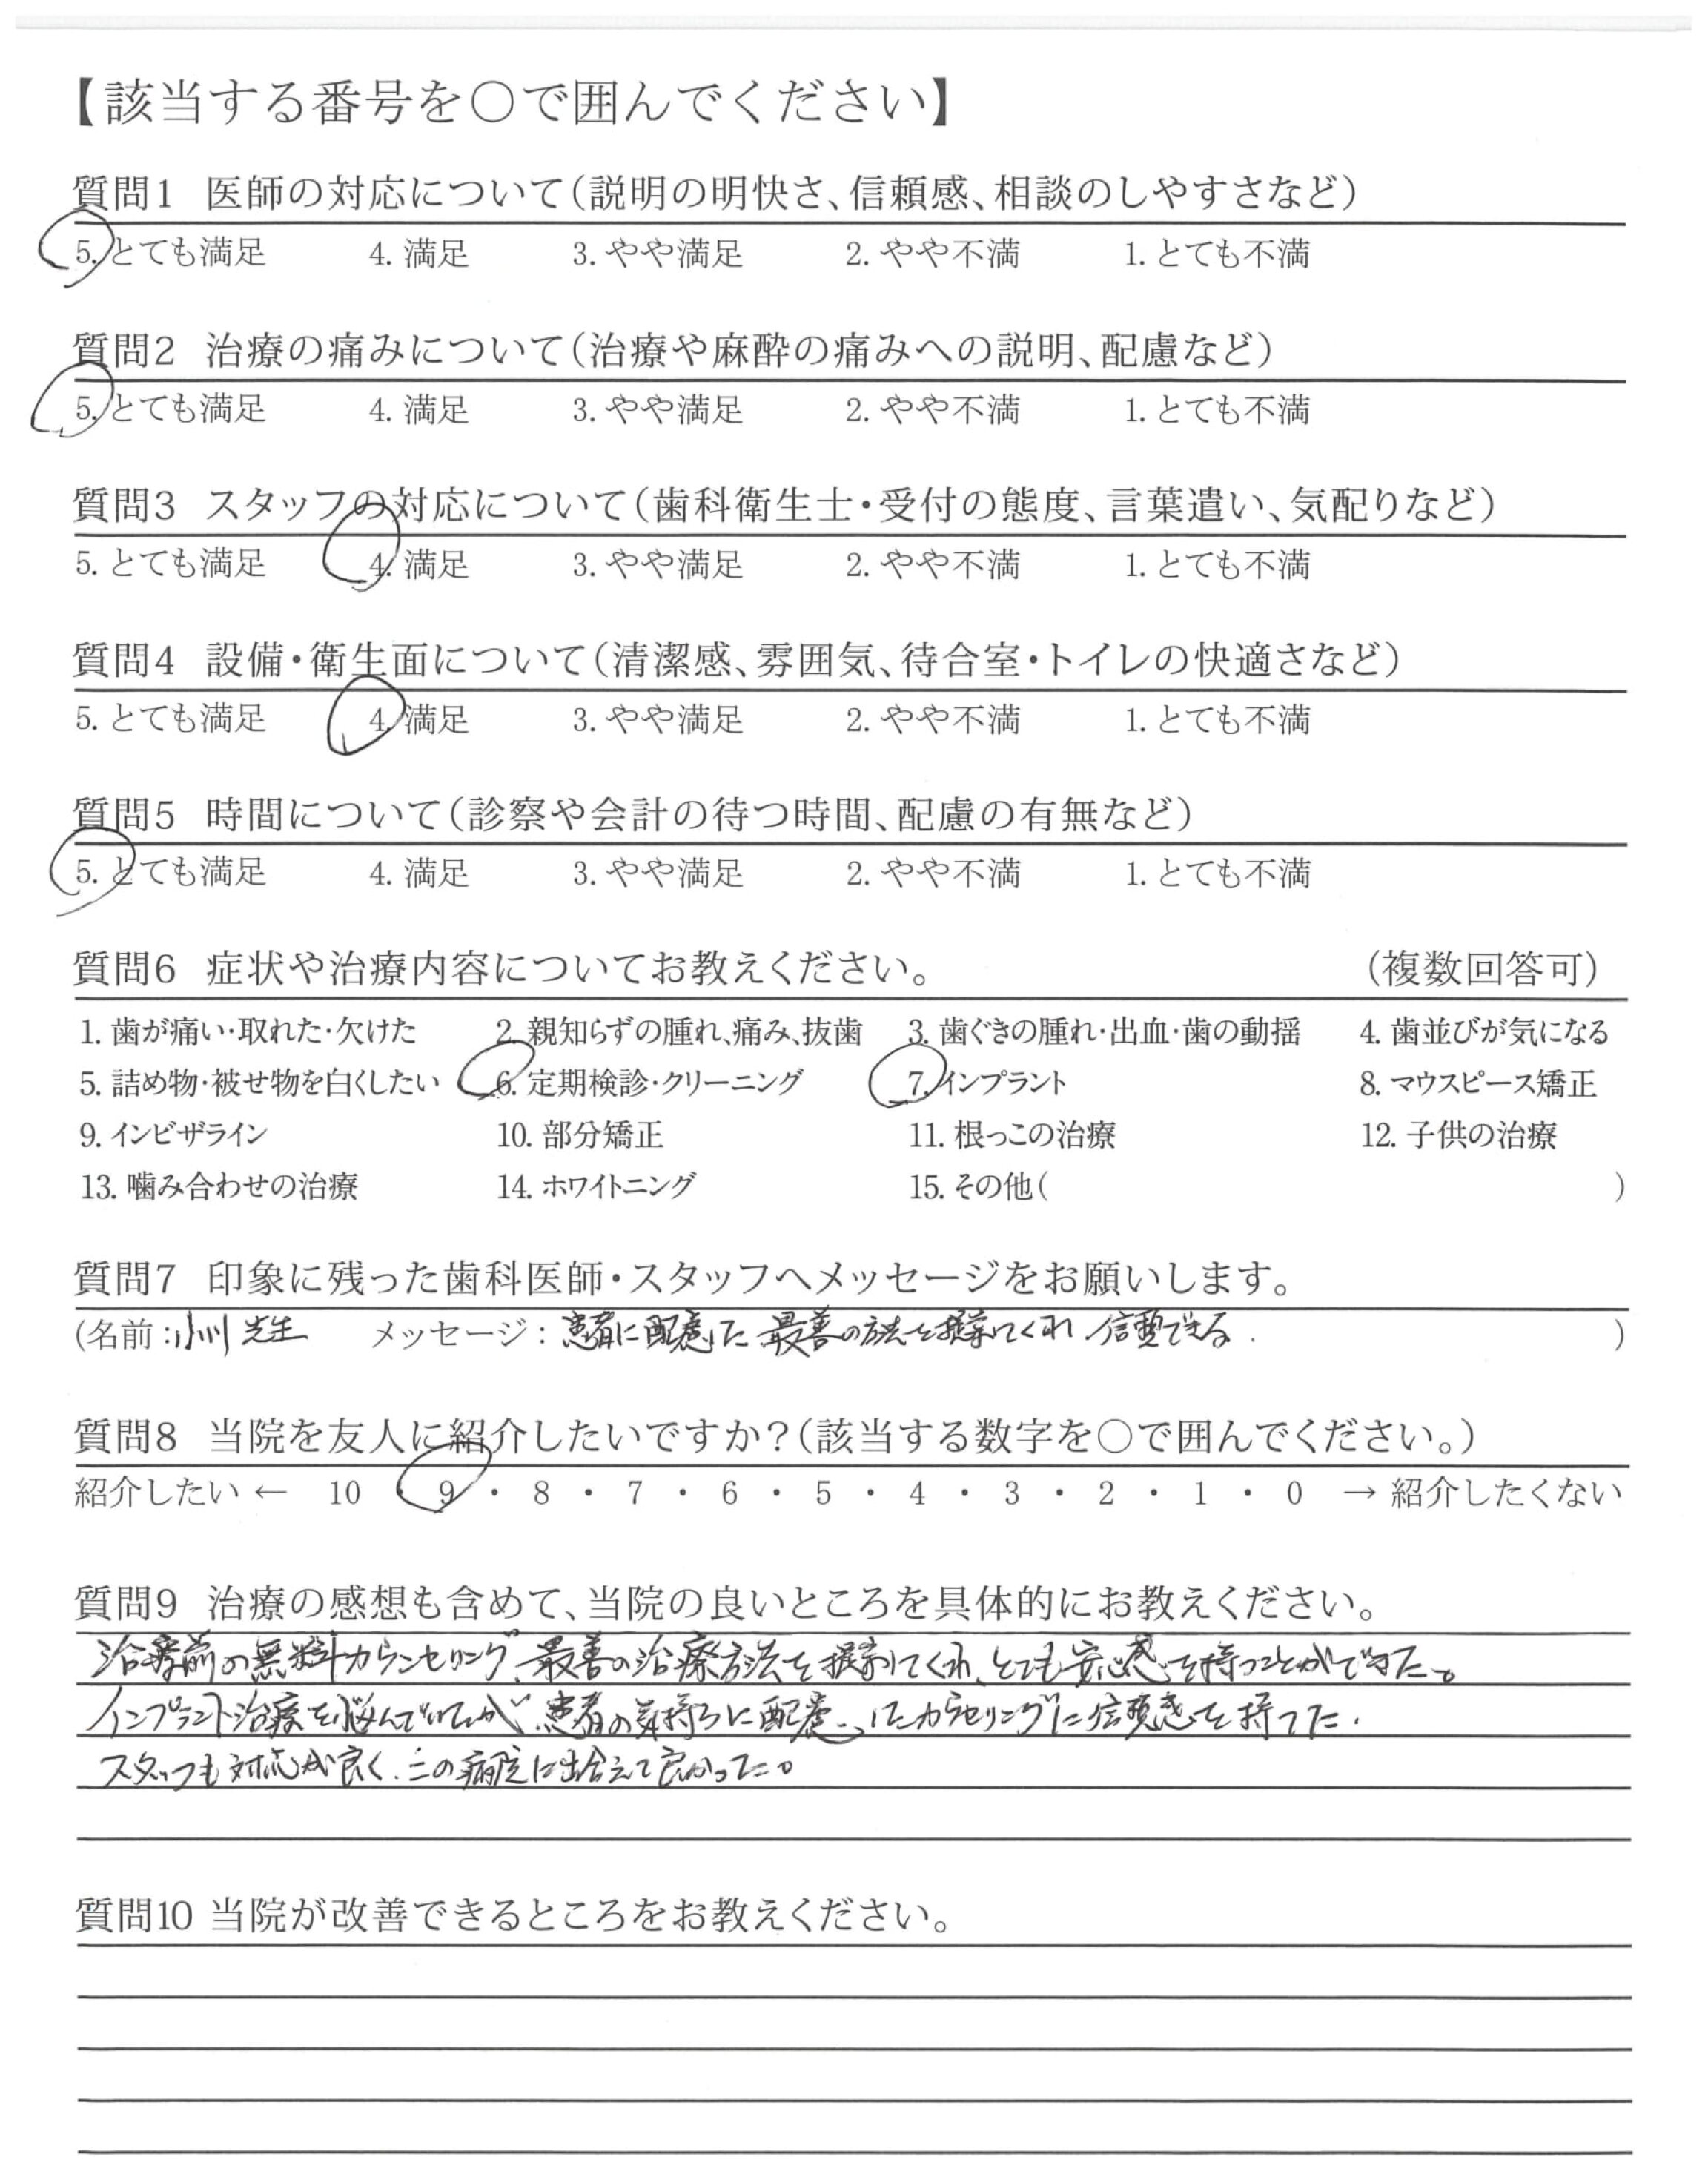 【該当する番号を○で囲んでください】
質問1 医師の対応について（説明の明快さ、信頼感、相談のしやすさなど）
5. とても満足 4. 満足 3. やや満足 2. やや不満 1. とても不満
質問2 治療の痛みについて（治療や麻酔の痛みへの説明、配慮など）
5. とても満足 4. 満足 3. やや満足 2. やや不満 1. とても不満
質問3 スタッフの対応について（歯科衛生士・受付の態度、言葉遣い、気配りなど）
5. とても満足 4. 満足 3. やや満足 2. やや不満 1. とても不満
質問4 設備・衛生面について（清潔感、雰囲気、待合室・トイレの快適さなど）
5. とても満足 4. 満足 3. やや満足 2. やや不満 1. とても不満
質問5 時間について（診察や会計の待つ時間、配慮の有無など）
5. とても満足 4. 満足 3. やや満足 2. やや不満 1. とても不満
質問6 症状や治療内容についてお教えください。 （複数回答可）
1. 歯が痛い・取れた・欠けた 2. 親知らずの腫れ、痛み、抜歯 3. 歯ぐきの腫れ・出血・歯の動揺 4. 歯並びが気になる
5. 詰め物・被せ物を白くしたい 6. 定期検診・クリーニング 7. インプラント 8. マウスピース矯正
9. インビザライン 10. 部分矯正 11. 根っこの治療 12. 子供の治療
13. 噛み合わせの治療 14. ホワイトニング 15. その他（ ）
質問7 印象に残った歯科医師・スタッフへメッセージをお願いします。
（名前：小川先生 メッセージ：患者に配慮した最善の方法を提案してくれ 信頼できる. ）
質問8 当院を友人に紹介したいですか？（該当する数字を○で囲んでください。）
紹介したい ← 10 ・ 9 ・ 8 ・ 7 ・ 6 ・ 5 ・ 4 ・ 3 ・ 2 ・ 1 ・ 0 → 紹介したくない
質問9 治療の感想も含めて、当院の良いところを具体的にお教えください。
治療前の無料カウンセリング、最善の治療方法を提案してくれ、とても安心感を持つことができた。
インプラント治療を悩んでいたが、患者の気持ちに配慮したカウンセリングに信頼感を持てた.
スタッフも対応が良く、この病院に出会えて良かった。
質問10 当院が改善できるところをお教えください。